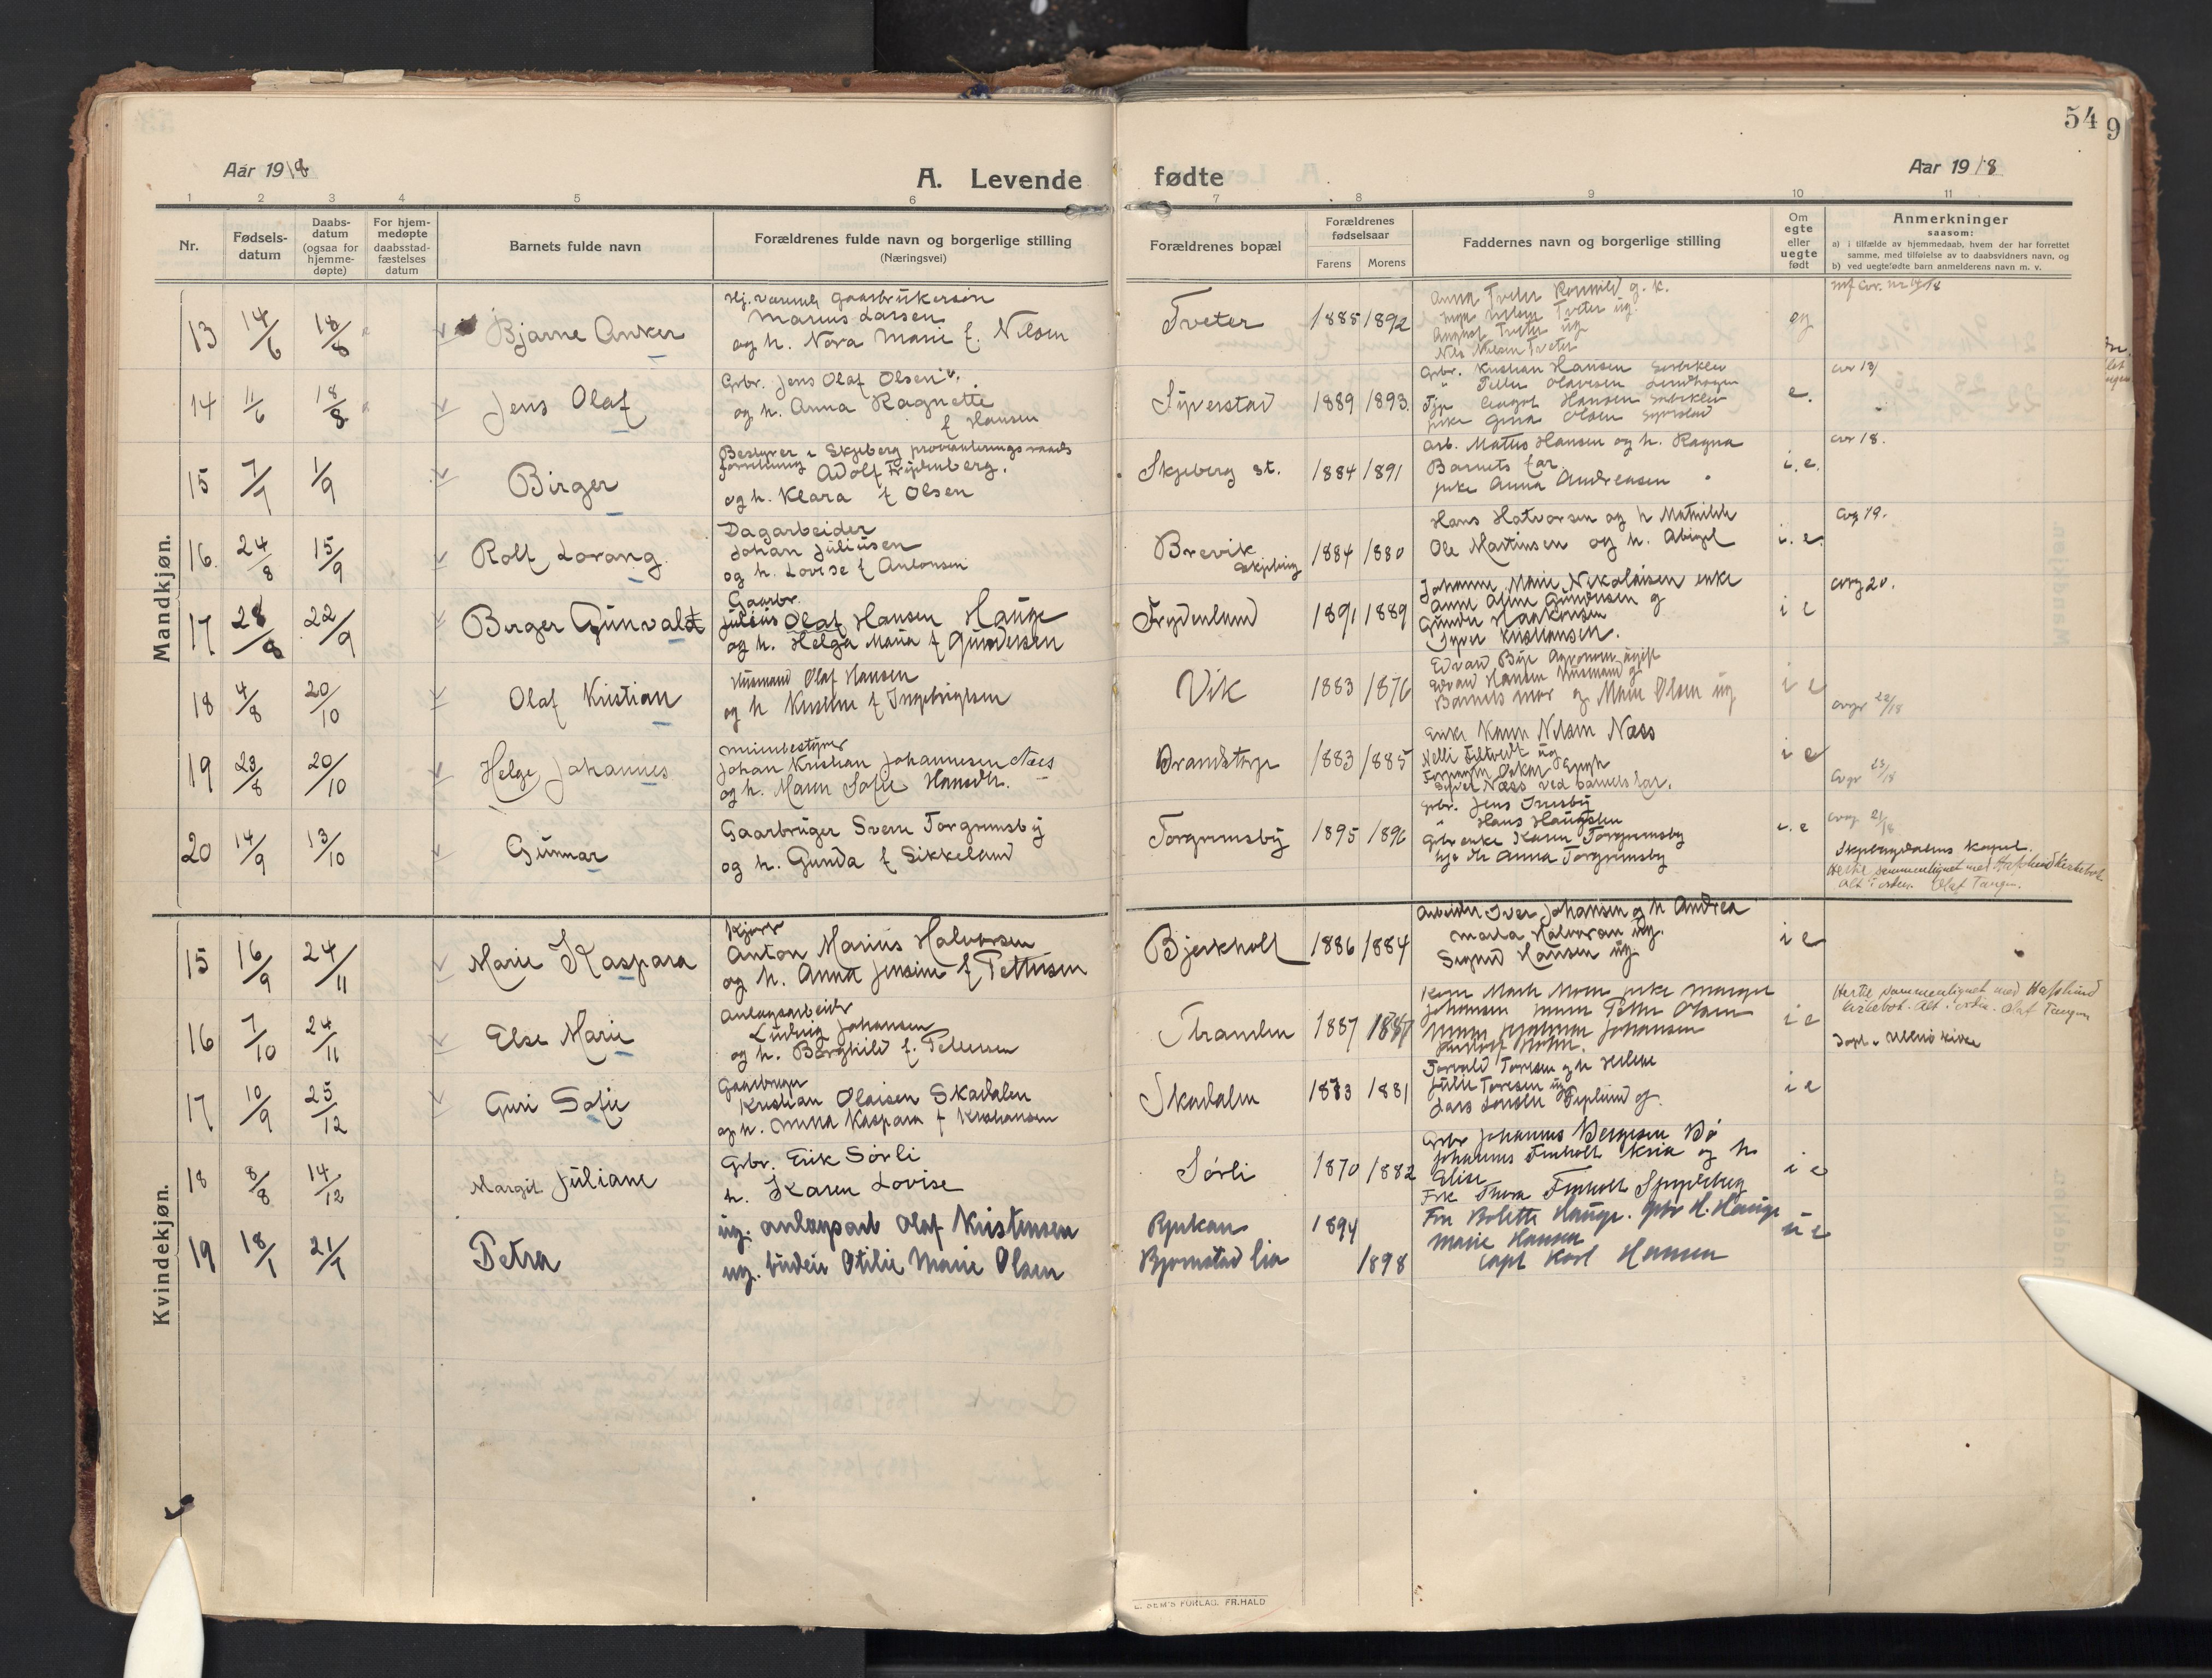 54
9
Aar 1918
A. Levende
fødte
Aar 1918
1 2 3 4 5 6 7 8 9 10 11
Nr.
Fødsels-
datum
Daabs-
datum
(ogsaa for
hjemme-
døpte)
For hjem-
medøpte
daabsstad-
fæstelses
datum
Barnets fulde navn
Forældrenes fulde navn og borgerlige stilling
(Næringsvei)
Forældrenes bopæl
Forældrenes
fødselsaar
Farens Morens
Faddernes navn og borgerlige stilling
Om
egte
eller
uegte
født
Anmerkninger
saasom:
a) i tilfælde av hjemmedaab, hvem der har forrettet
samme, med tilføielse av to daabsvidners navn, og
b) ved uegtefødte barn anmelderens navn m. v.
Mandkjøn.
13 14/6 18/8 Bjarne Anker
gaarbrukersøn
Marius Larsen
og h. Nora Marie f. Nilsen
Tveter 1885 1892
Anna Tveter
Inga Nilsen Tveter ug.
August Tveter ug
Nils Nilsen Tveter
eg
14 11/6 18/8 Jens Olaf
Grbr. Jens Olaf Olsen
og h. Anna Ragnette
f Hansen
Syverstad 1889 1893
Grbr. Kristian Hansen
Olavesen
August Hansen
pike Gina Olsen Syverstad
e.
15 7/7 1/9 Birger
Bestyrer i Skjeberg provianteringsraads
forretning Adolf Frydenberg.
og h. Klara f Olsen
Skjeberg st. 1884 1891
arb. Mattis Hansen og h. Ragna
Barnets far
pike Anna Andreasen
i. e.
18.
16. 24/8 15/9 Rolf Lorang.
Dagarbeider
Johan Juliusen
og h. Lovise f Antonsen
Brevik
Skjeberg
1884 1880
Hans Halvorsen og h Mathilde
Ole Martinsen og h. Abigel
i. e.
19.
17 28/8 22/9 Birger Gunvaldt
Gaarbr.
Julius Olaf Hansen Hauge
og h. Helga Maria f Gundersen
Frydenlund 1891 1889
Johanne Marie Nikolaisen enke
Gundersen g
Gunder Haakonsen
Syver Kristiansen.
i e
20.
18 4/8 20/10 Olaf Kristian
Husmand Olaf Hansen
og h Kristine f Ingebrigtsen
Vik 1883 1876
Edvard Bye Agronom ugift
Edvard Hansen Husmand g
Barnets mor og Marie Olsen ug
i e
22/18
19 23/8 20/10 Helge Johannes
Johan Kristian Johannesen Næs
og h. Maren Sofie Hansdtr.
1883 1885
Enke Karen Nilsen Næss
Nelli
Oskar
Syver Næss ved barnets far.
i e
23/18
20 14/9 13/10 Gunnar
Gaarbruger Svein Torgrimsby
og h. Gunda f Sikkeland
Torgrimsby 1895 1896
Grbr. Jens
" Hans
Grbr enke Karen Torgrimsby
Anna Torgrimsby
i. e
21/18
Skjebergdalens kapel.
Hertil sammenlignet med Hafslund kirkebok
Alt i orden. Olaf Tangen.
Kvindekjøn.
15 16/9 24/11 Marie Kaspara
Anton Marius Halvorsen
og h. Anna Jensine f Pettersen
Bjerkholt 1886 1884
Arbeider Iver Johansen og h Andrea
Marta Halvorsen ug.
Sigrid Hansen ug.
i e
16 7/10 24/11 Else Marie
Anlægsarbeider
Ludvig Johansen
og h. Borghild f. Pettersen
1887 1887
Johansen
Olsen
Johansen
i e
Hertil sammenlignet med Hafslund
kirkebok. Alt i orden. Olaf Tangen
Døpt i Ullerø kirke
17 10/9 25/12 Guri Sofie
Gaarbruger
Kristian Olaisen Skadalen
og h. Kaspara f Kristiansen
Skadalen 1883 1881
Torvald Toresen og h Helene
Julie Toresen ug
Lars
i e
18 8/8 14/12 Margit Juliane
Grbr. Erik Sörli
h. Karen Lovise
Sörli 1870 1882
Grbr Johannes Bergesen Bö
Johannes Finholt Kria og h
Elise
Frk Thora Finholt
i e
19 18/1 21/1 Petra
ug. anlægsarb Olaf Kristensen
ug. budeie Otilie Marie Olsen
Rjukan 1894
Bjornstad lia 1898
Fru Bolette Hauge. grbr H. Hauge
Marie Hansen
Capt Karl Hansen
u e
E. SEM'S FORLAG. FR.HALD